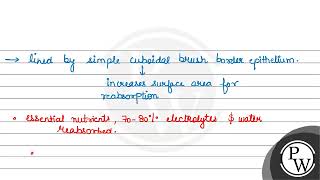 → lined by simple cuboidal brush border epithelium.
↓
increases surface area for
reabsorption
• essential nutrients, 70-80% electrolytes & water
reabsorbed.
•
PW
PW